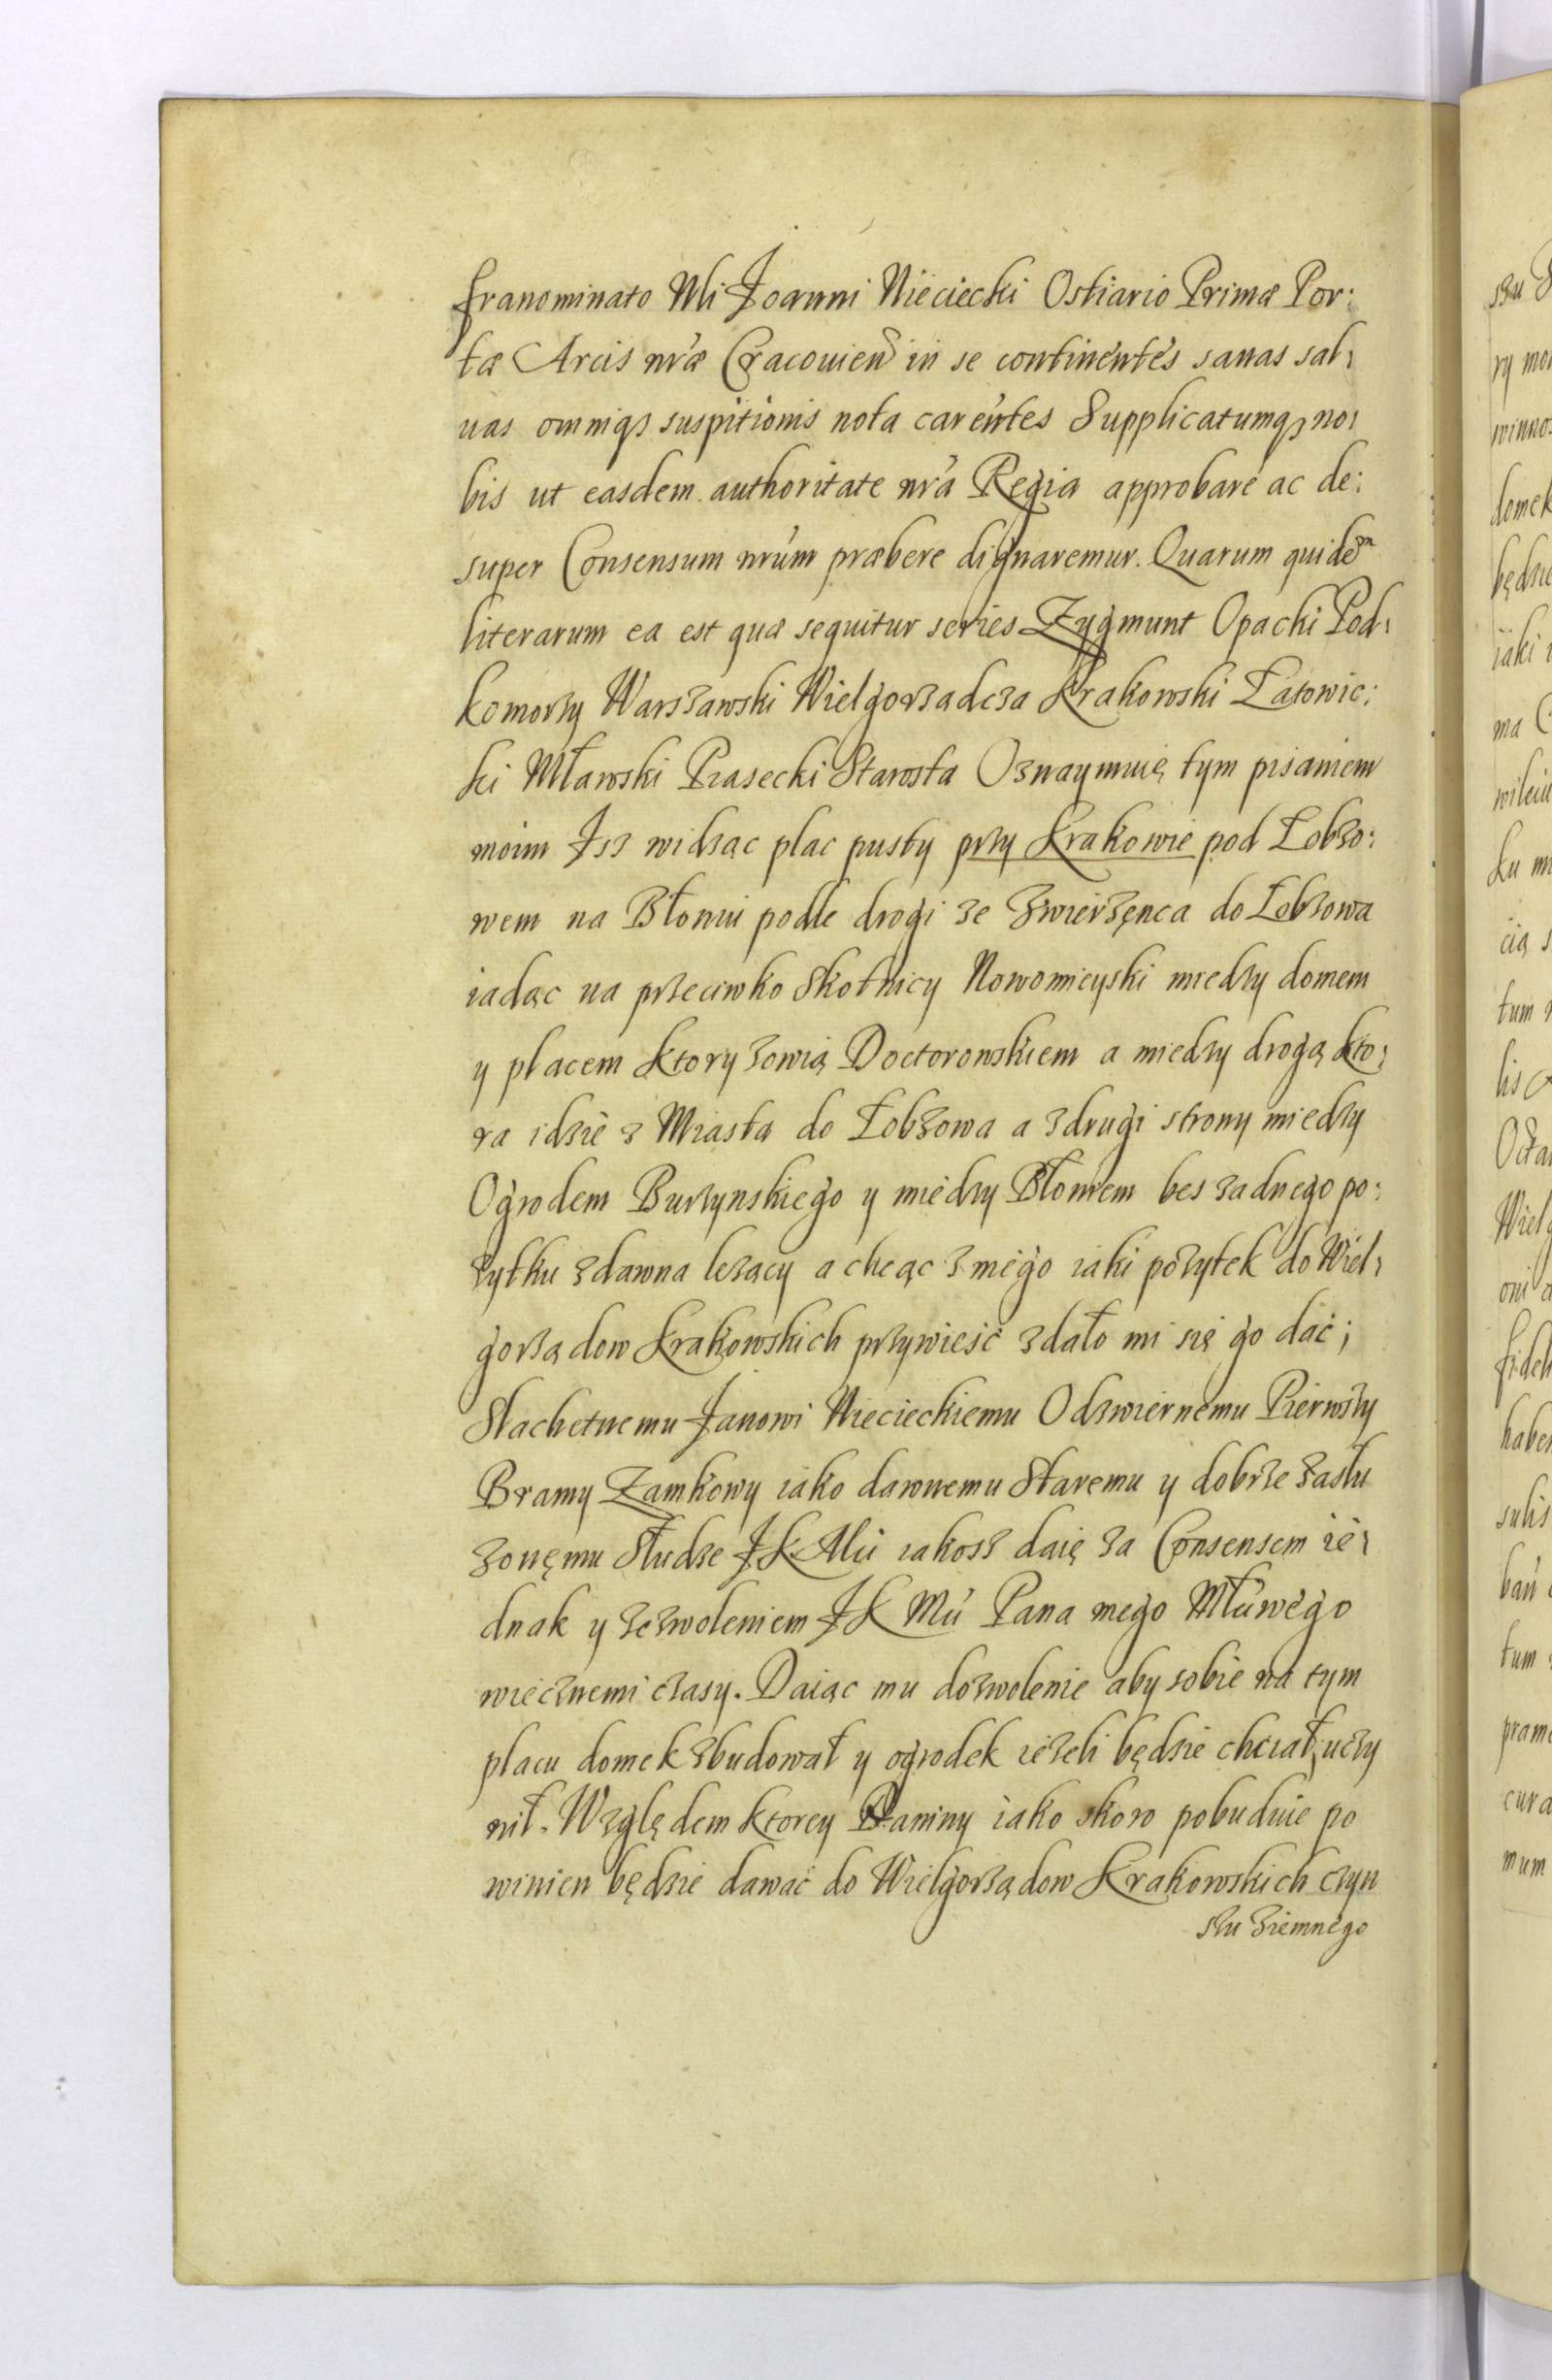 franominato Nli Joanni Nieciecki Ostiario Primæ Por:
tæ Arcis nræ Cracovien in se continentes sanas sal:
uas omniqз suspitionis nota carentes Supplicatumqз no:
bis ut easdem authoritate nra Regia approbare ac de:
super Consensum nrum præbere dignaremur. Quarum quidem
literarum ea est quæ sequitur series Zygmunt Opacki Pod:
komorzy Warszawski Wielgorzadcza Krakowski Łatowic:
ki Mławski Piasecki Starosta Oznaymuię tym pisaniem
moim Isz widząc plac pusty przy Krakowie pod Łobzo:
wem na Błoniu podle drogi ze Zwierzęnca do Łobzowa
iadąc na przeciwko Skotnicy Nowomieyski miedzy domem
y placem ktory zowią Doctorowskiem a miedzy drogą kto:
ra idzie z Miasta do Łobzowa a z drugi strony miedzy
Ogrodem Burzynskiego y miedzy Błoniem bes zadnego po:
zytku zdawna lezący a chcąc z niego iaki pozytek do Wiel:
gorządow Krakowskich przywieść zdało mi się go dać;
Slachetnemu Janowi Niecieckiemu Odzwiernemu Pierwszy
Bramy Zamkowy iako dawnemu Staremu y dobrze zasłu
zonęmu Słudze JK Mci iakosz daię za Consensem ie:
dnak y zezwoleniem JK Mci Pana mego Młciwego
wiecznemi czasy. Daiąc mu dozwolenie aby sobie na tym
placu domek zbudował y ogrodek iezeli będzie chciał, uczy
nił. Względem ktorey Daniny iako skoro pobuduie po
winien będzie dawać do Wielgorządow Krakowskich czyn
szu ziemnego